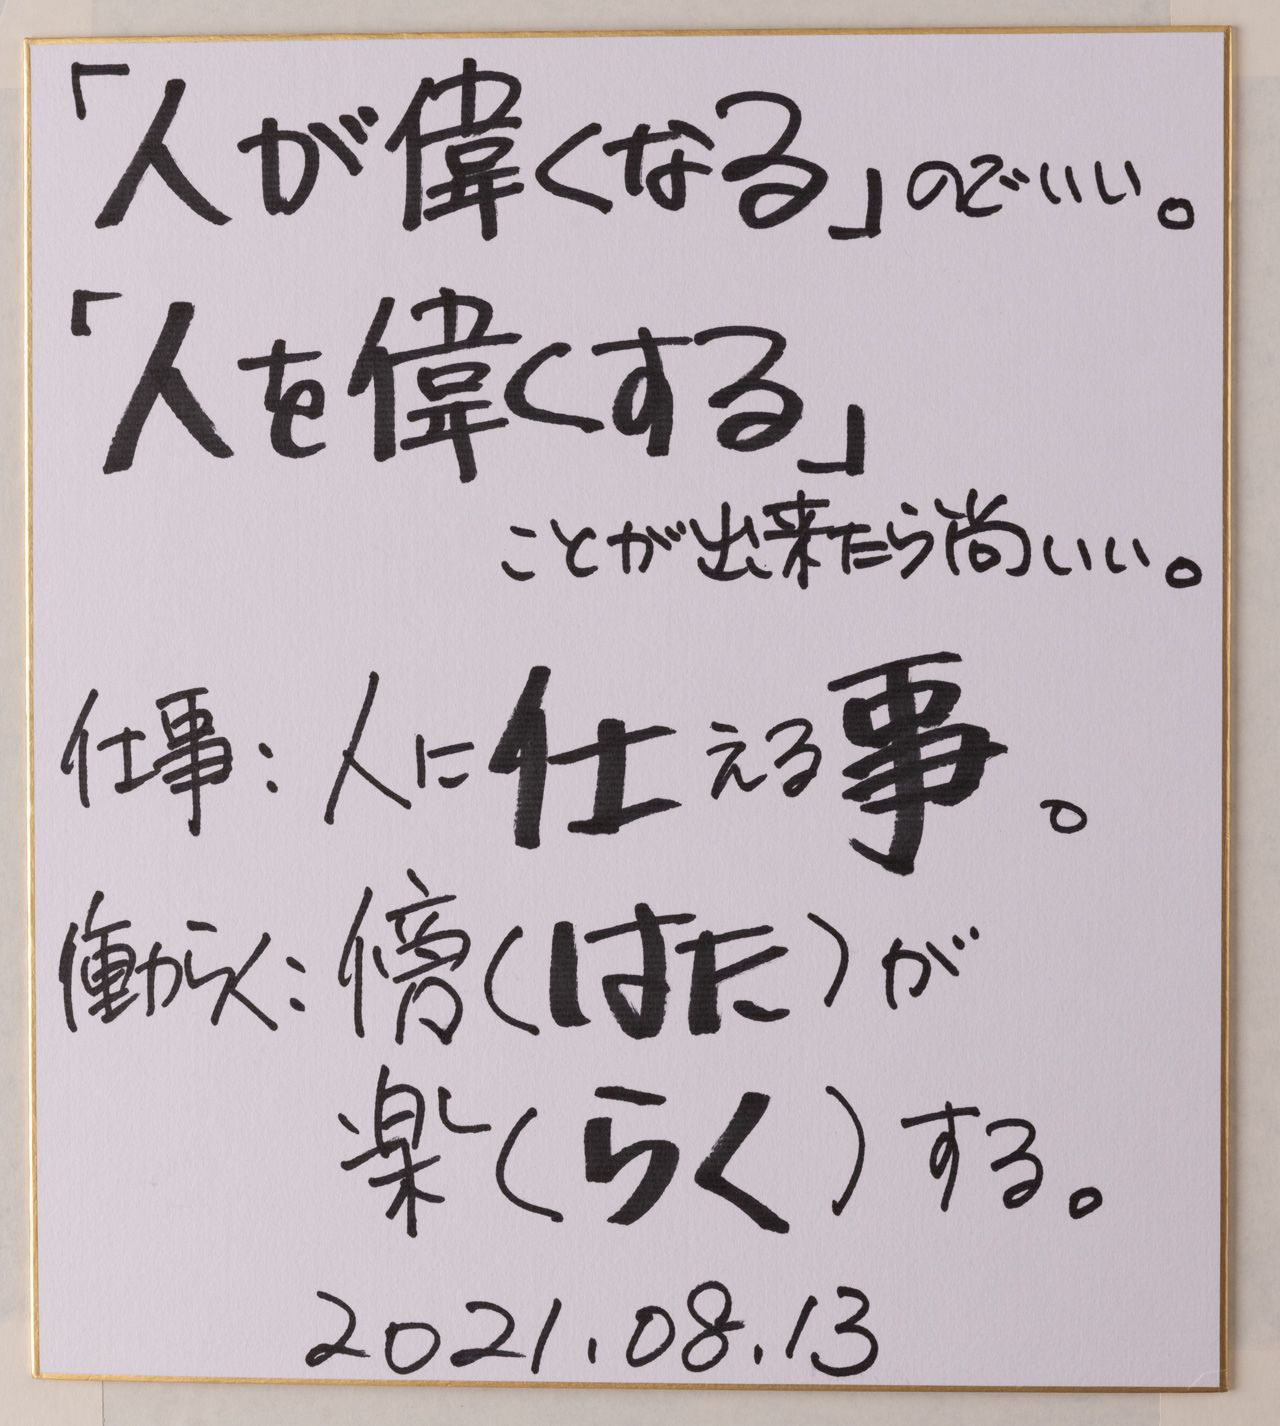 「人が偉くなる」のでいい。
「人を偉くする」
ことが出来たら尚いい。
仕事：人に仕える事。
働からく：傍（はた）が
楽（らく）する。
2021.08.13